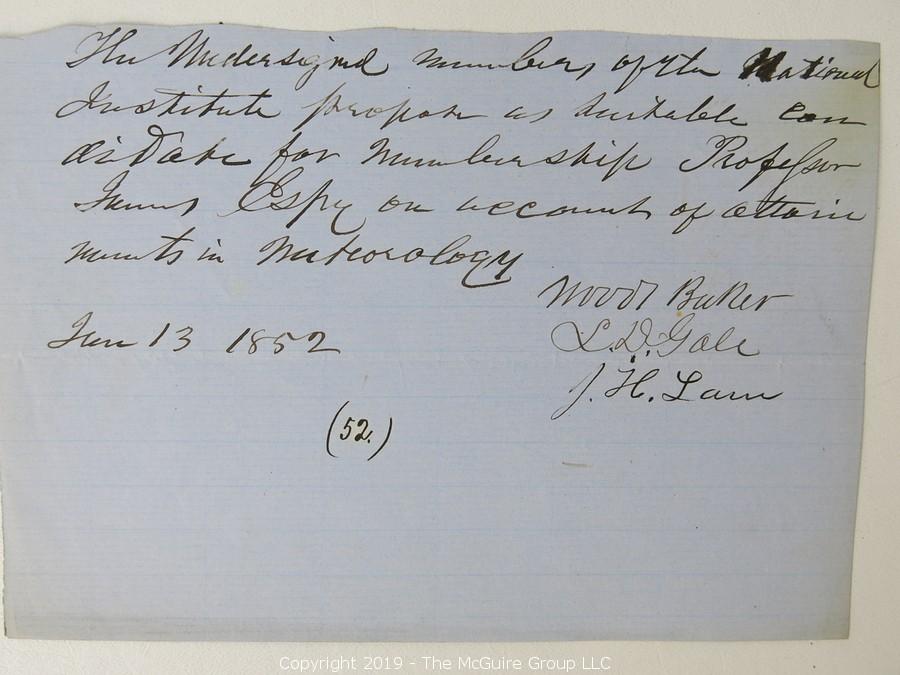 The Undersigned members of the National
Institute propose as suitable can
didate for membership Professor
James Espy on account of attain
ments in Meteorology
Woods Baker
L. D. Gale
J. H. Lane
Jan 13 1852
(52.)
Copyright 2019 - The McGuire Group LLC